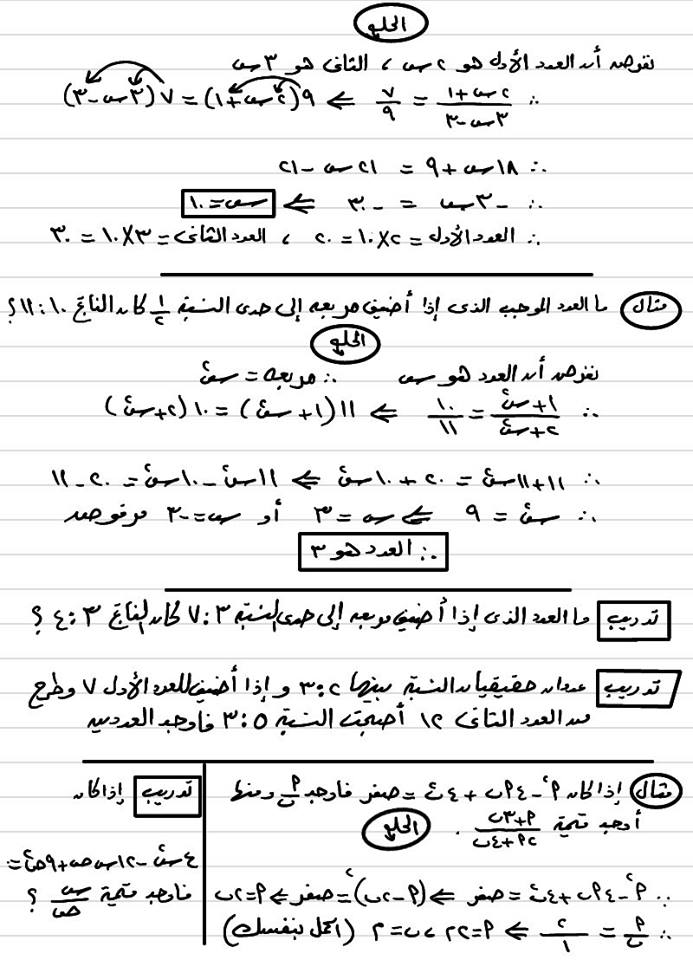 الحل
نفرض أن العدد الأول هو ٢س ، الثانى هو ٣س
∴ (٢س+١)/(٣س-٣) = ٧/٩ ⇐ ٩(٢س+١) = ٧(٣س-٣)
∴ ١٨س + ٩ = ٢١س - ٢١
∴ -٣س = -٣٠ ⇐ س=١٠
∴ العدد الأول = ٢×١٠ = ٢٠ ، العدد الثانى = ٣×١٠ = ٣٠
مثال ما العدد الموجب الذى إذا أضيف مربعه إلى حدى النسبة ١/٢ كان الناتج ١٠:١١؟
الحل
نفرض أن العدد هو س ∴ مربعه = س²
∴ (١+س²)/(٢+س²) = ١٠/١١ ⇐ ١١(١+س²) = ١٠(٢+س²)
∴ ١١+١١س² = ٢٠+١٠س² ⇐ ١١س²-١٠س² = ٢٠-١١
∴ س² = ٩ ⇐ س = ٣ أو س=-٣ مرفوضة
∴ العدد هو ٣
تدريب ما العدد الذى إذا أضيف مربعه إلى حدى النسبة ٧:٣ كان الناتج ٤:٣ ؟
تدريب عددان حقيقيان النسبة بينهما ٣:٢ وإذا أضيف للعدد الأول ٧ وطرح
من العدد الثانى ١٢ أصبحت النسبة ٣:٥ فأوجد العددين
مثال إذا كان م²-٤م ب+٤ب² = صفر فأوجد م/ب ومنها
أوجد قيمة (م+٣ب)/(٢م+٤ب) .
الحل
∵ م²-٤م ب+٤ب² = صفر ⇐ (م-٢ب)² = صفر ⇐ م=٢ب
∴ م/ب = ٢/١ ⇐ م=٢م ، ب=م (اكمل بنفسك)
تدريب إذا كان
٤س²-١٢س ص+٩ص²=
فأوجد قيمة س/ص ؟